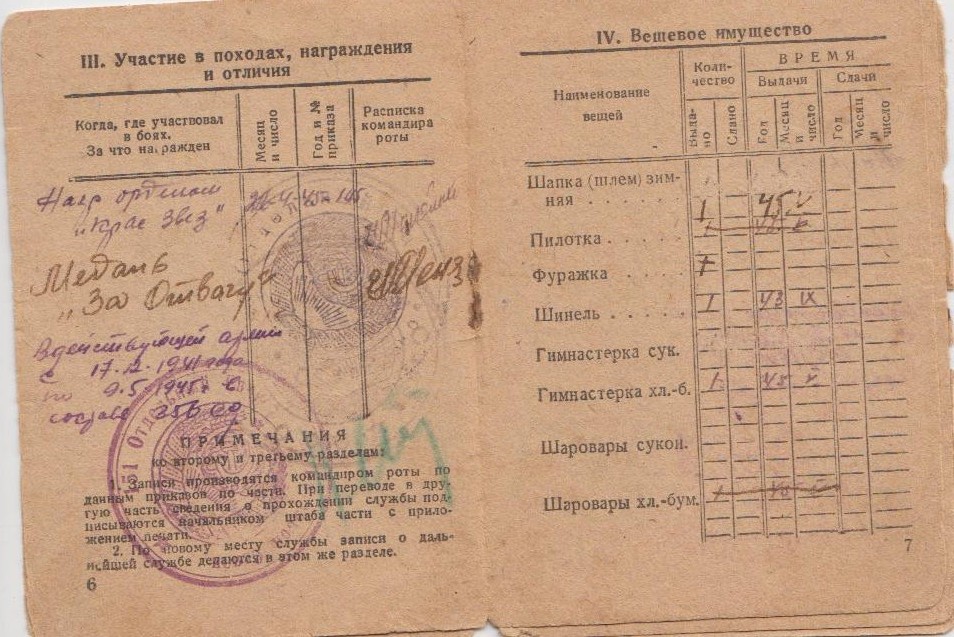 III. Участие в походах, награждения
и отличия
Когда, где участвовал
в боях.
За что награжден
Месяц
и число
Год и №
приказа
Расписка
командира
роты
Нагр орденом
„Крас Звез"
Медаль
„За Отвагу"
В действующей армии
с 17.12.1941 года
по 9.5.1945г. в
составе 256 сд
121 Отдельный
ПРИМЕЧАНИЯ
ко второму и третьему разделам:
1. Записи производятся командиром роты по
данным приказов по части. При переводе в дру-
гую часть сведения о прохождении службы под-
писываются начальником штаба части с прило-
жением печати.
2. По новому месту службы записи о даль-
нейшей службе делаются в этом же разделе.
6
IV. Вещевое имущество
Наименование
вещей
Коли-
чество
ВРЕМЯ
Выдачи
Сдачи
Выда-
но
Сдано
Год
Месяц
и
число
Год
Месяц
и
число
Шапка (шлем) зим-
няя . . . . . . 1 45 V
Пилотка . . . . .
Фуражка . . . .
Шинель . . . . . 1 43 IX
Гимнастерка сук.
Гимнастерка хл.-б. 1 45
Шаровары сукон.
Шаровары хл.-бум.
7